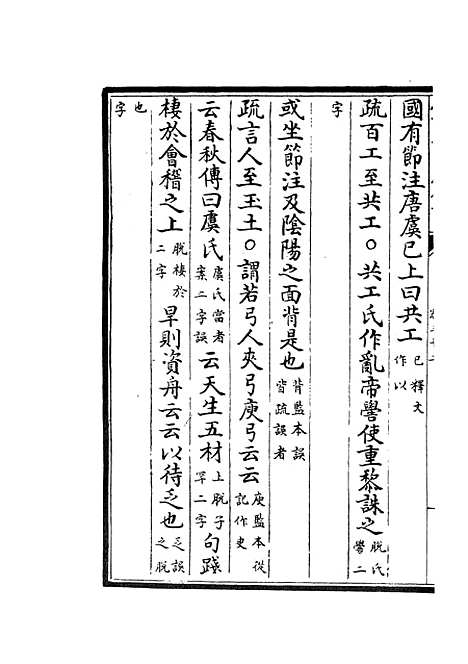 國有節注唐虞已上曰共工已釋文作以
疏百工至共工○共工氏作亂帝嚳使重黎誅之脫氏嚳二
字
或坐節注及陰陽之面背是也背監本誤皆疏誤者
疏言人至玉土○謂若弓人夾弓庾弓云云庾監本從記作史
云春秋傳曰虞氏虞氏當者案二字誤云天生五材上脫子罕二字句踐
棲於會稽之上脫棲於二字旱則資舟云云以待乏也乏誤之脫
也字